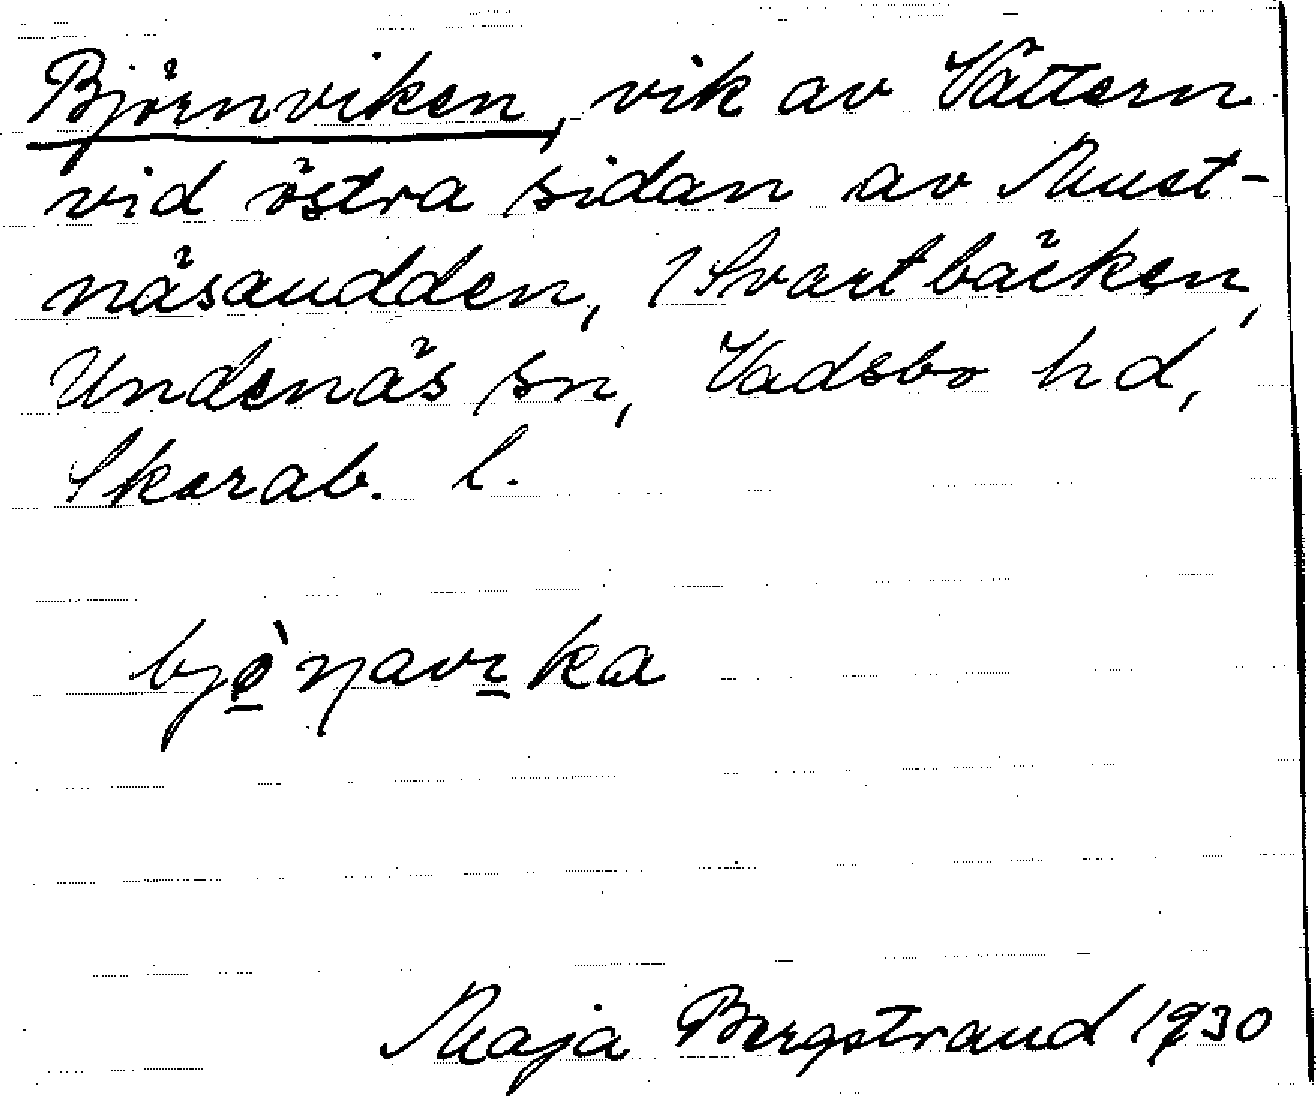 Björnviken, vik av Vättern
vid östra sidan av Must-
näsaudden, 1 Svartbäcken,
Undenäs sn, Vadsbo hd,
Skarab. l.
bjö̀ŋavıka
Maja Bergstrand 1930